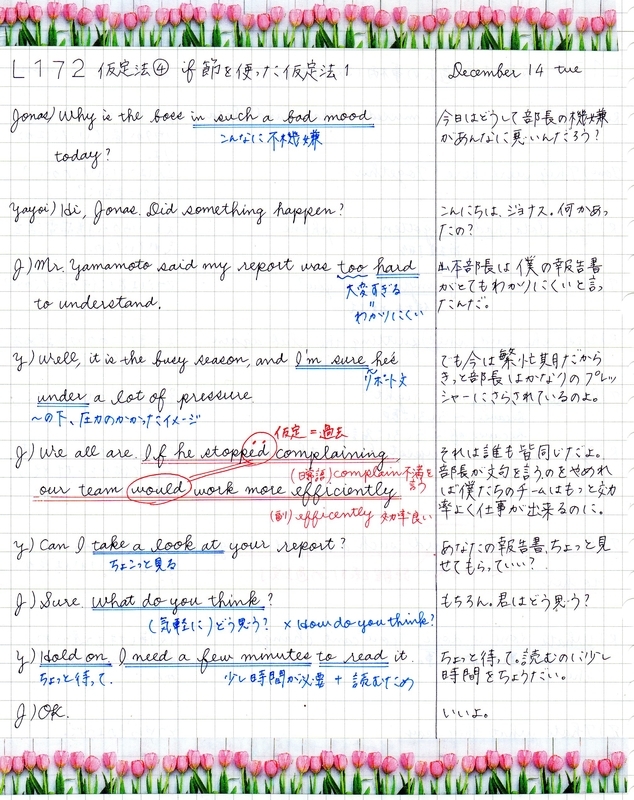 L172 仮定法④ if節を使った仮定法1
December 14 tue
Jonas) Why is the boss in such a bad mood
こんなに不機嫌
today?
今日はどうして部長の機嫌
があんなに悪いんだろう?
Yayoi) Hi, Jonas. Did something happen?
こんにちは、ジョナス。何かあっ
たの?
J) Mr. Yamamoto said my report was too hard
大変すぎる
to understand.
=
わかりにくい
山本部長は僕の報告書
がとてもわかりにくいと言っ
たんだ。
Y) Well, it is the busy season, and I'm sure he's
リポート文
under a lot of pressure
〜の下、圧力のかかったイメージ
でも今は繁忙期だから
きっと部長はかなりのプレッ
シャーにさらされているのよ。
仮定=過去
J) We all are. If he stopped complaining
(日常語) complain 不満を
言う
our team would work more efficiently
(副) efficently 効率良い
それは誰も皆同じだよ。
部長が文句を言うのをやめれ
ば僕たちのチームはもっと効
率よく仕事が出来るのに。
Y) Can I take a look at your report?
ちょこっと見る
あなたの報告書、ちょっと見
せてもらっていい?
J) Sure. What do you think?
(気軽に)どう思う? × How do you think?
もちろん。君はどう思う?
Y) Hold on. I need a few minutes to read it.
ちょっと待って. 少し時間が必要 + 読むため
ちょっと待って。読むのに少し
時間をちょうだい。
J) OK.
いいよ。